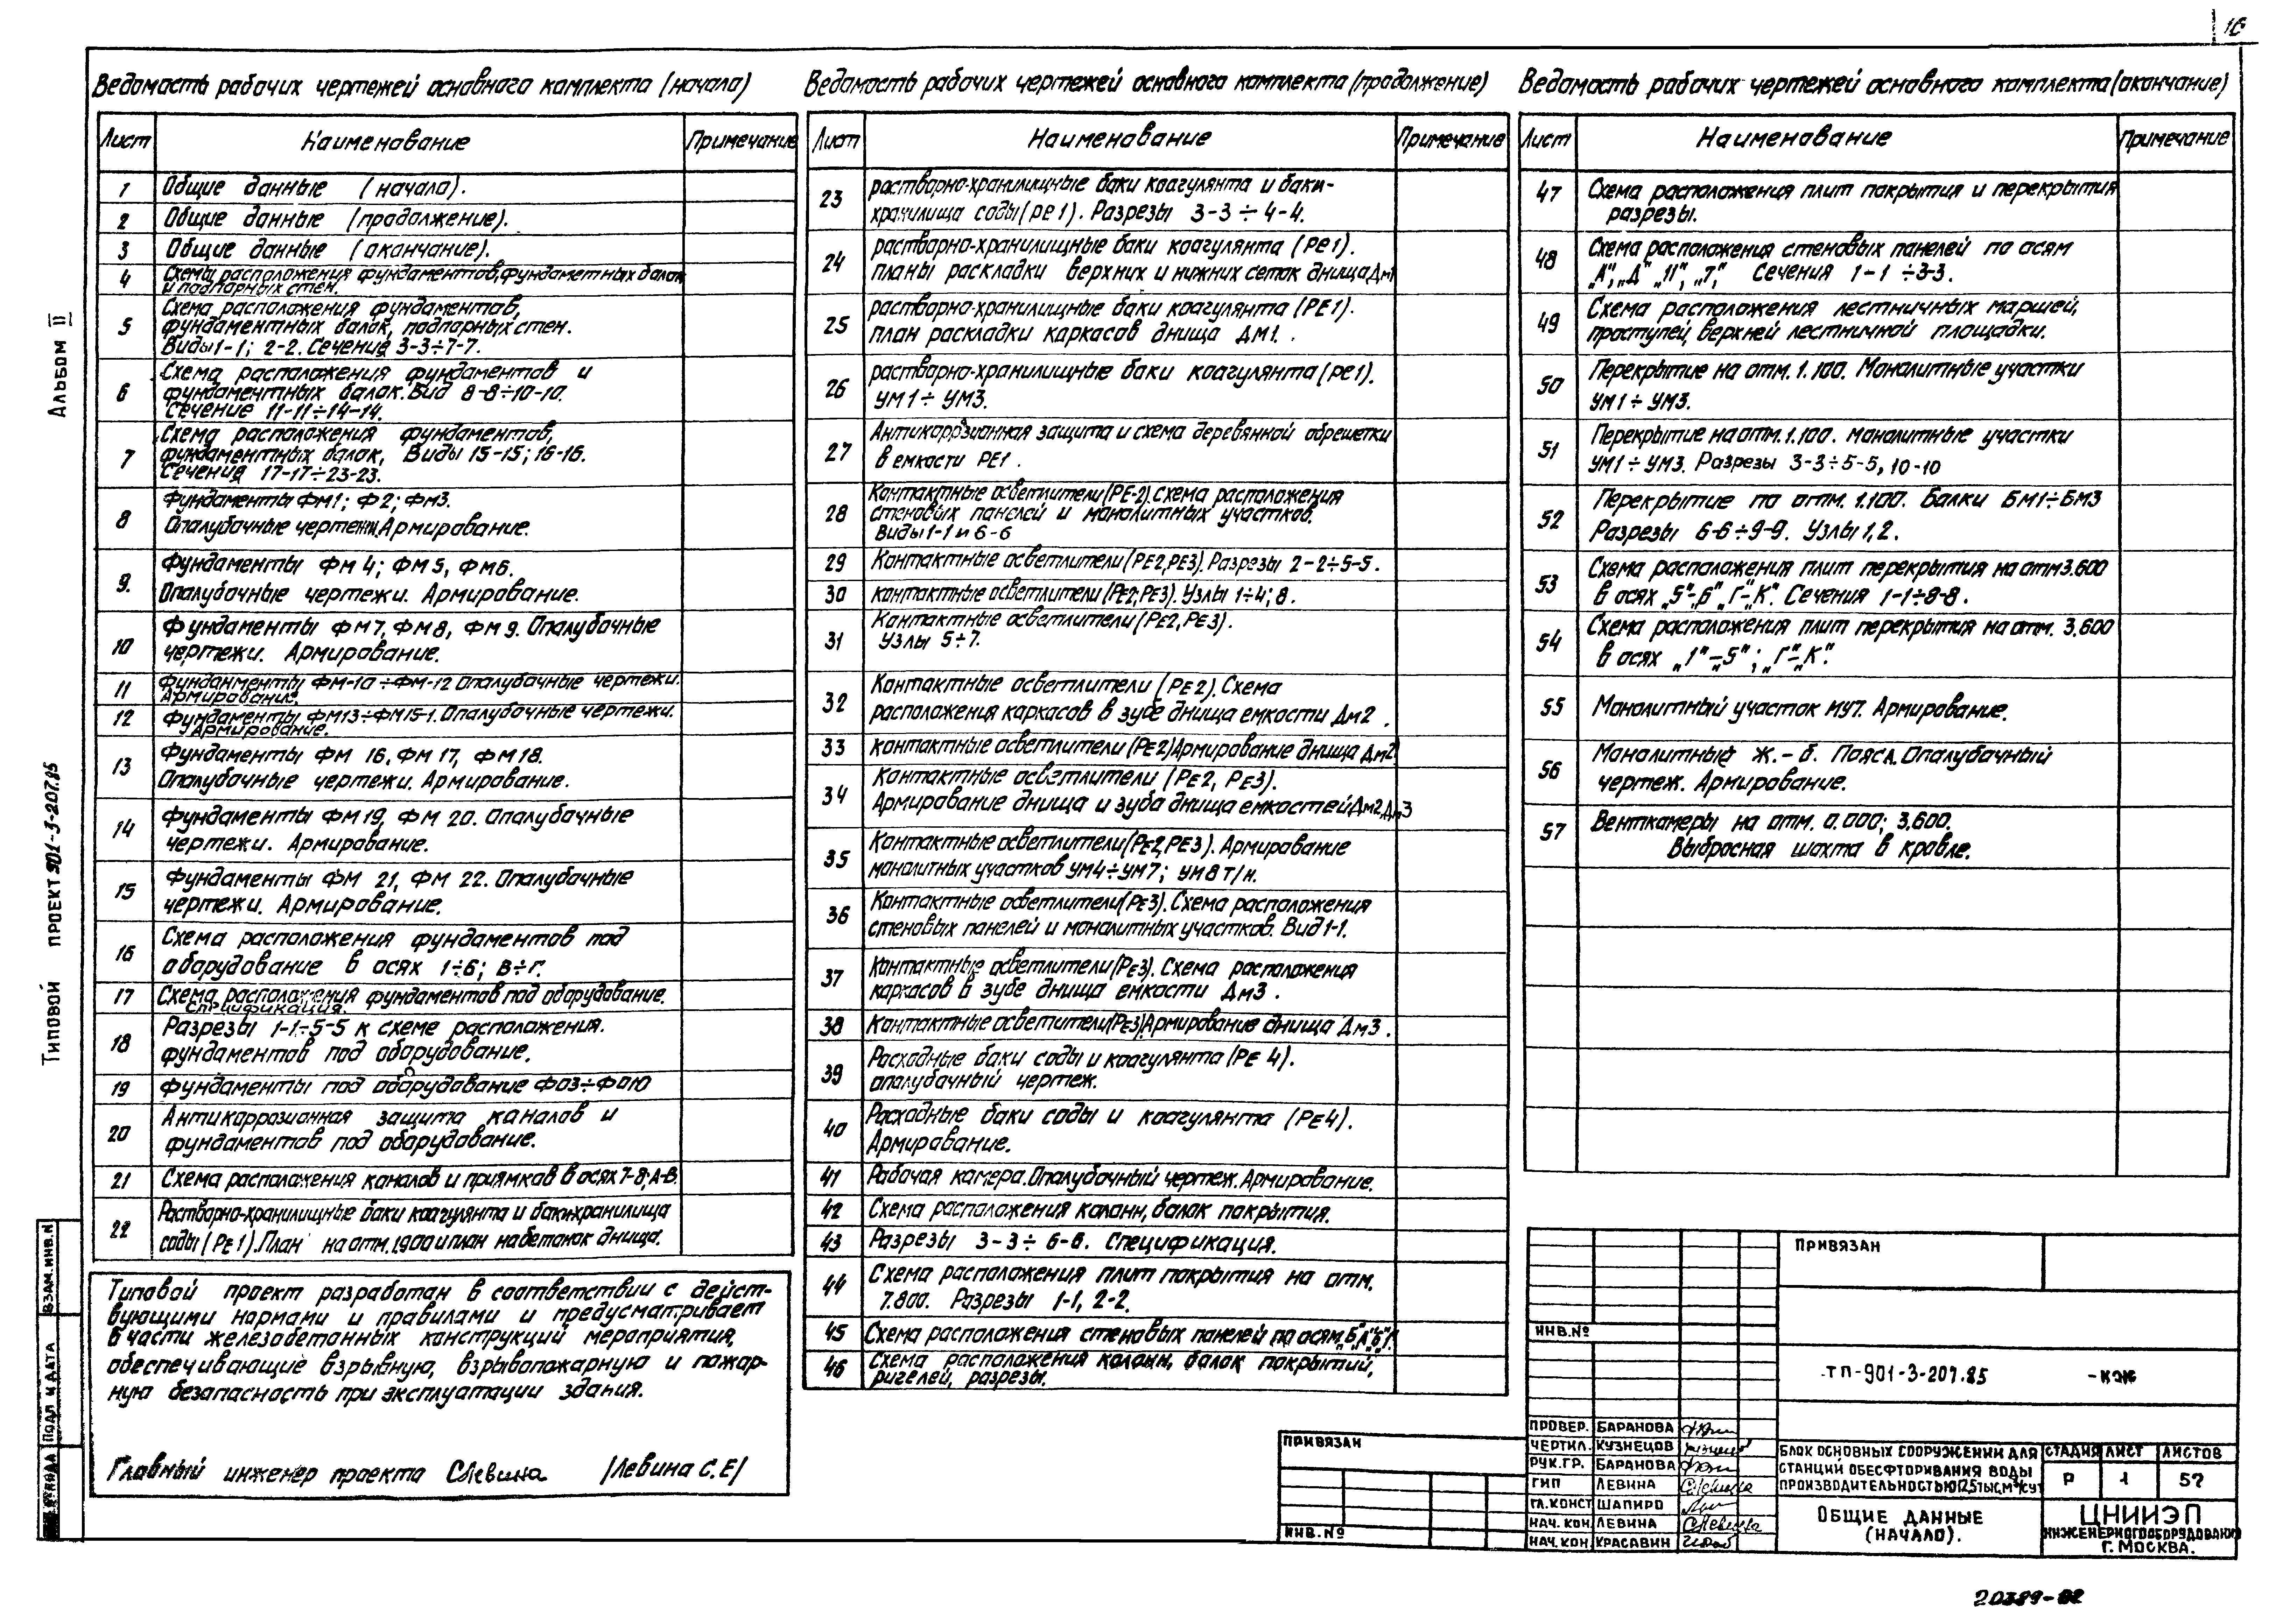 16
Ведомость рабочих чертежей основного комплекта (начало)
Лист Наименование Примечание
1 Общие данные (начало).
2 Общие данные (продолжение).
3 Общие данные (окончание).
4 Схемы расположения фундаментов, фундаметных балок
и подпорных стен.
5 Схема расположения фундаментов,
фундаментных балок, подпорных стен.
Виды 1-1; 2-2. Сечения 3-3÷7-7.
6 Схема расположения фундаментов и
фундаментных балок. Вид 8-8÷10-10.
Сечение 11-11÷14-14.
7 Схема расположения фундаментов,
фундаментных балок, Виды 15-15; 16-16.
Сечения 17-17÷23-23.
8 Фундаменты ФМ1; Ф2; ФМ3.
Опалубочные чертежи. Армирование.
9. Фундаменты ФМ 4; ФМ5, ФМ6.
Опалубочные чертежи. Армирование.
10 Фундаменты ФМ7, ФМ8, ФМ 9. Опалубочные
чертежи. Армирование.
11 Фунданменты ФМ-10÷ФМ-12 Опалубочные чертежи.
Армирование.
12 Фундаменты ФМ13÷ФМ15-1. Опалубочные чертежи.
Армирование.
13 Фундаменты ФМ 16, ФМ 17, ФМ 18.
Опалубочные чертежи. Армирование.
14 Фундаменты ФМ 19, ФМ 20. Опалубочные
чертежи. Армирование.
15 Фундаменты ФМ 21, ФМ 22. Опалубочные
чертежи. Армирование.
16 Схема расположения фундаментов под
оборудование в осях 1÷6; В÷Г.
17 Схема расположения фундаментов под оборудование.
Спецификация.
18 Разрезы 1-1÷5-5 к схеме расположения.
фундаментов под оборудование.
19 Фундаменты под оборудование ФО3÷ФО10
20 Антикоррозионная защита каналов и
фундаментов под оборудование.
21 Схема расположения каналов и приямков в осях 7-8; А-В.
22 Растворно-хранилищные баки коагулянта и баки-хранилища
соды (РЕ1). План на отм. 1.900 и план набетонок днища.
Типовой проект разработан в соответствии с дейст-
вующими нормами и правилами и предусматривает
в части железобетонных конструкций мероприятия,
обеспечивающие взрывную, взрывопожарную и пожар-
ную безопасность при эксплуатации здания.
Главный инженер проекта СЛевина /Левина С.Е/
Ведомость рабочих чертежей основного комплекта (продолжение)
Лист Наименование Примечание
23 растворно-хранилищные баки коагулянта и баки-
хранилища соды (РЕ1). Разрезы 3-3÷4-4.
24 растворно-хранилищные баки коагулянта (РЕ1).
планы раскладки верхних и нижних сеток днища Дм1
25 растворно-хранилищные баки коагулянта (РЕ1).
план раскладки каркасов днища ДМ1.
26 растворно-хранилищные баки коагулянта (РЕ1).
УМ1÷УМ3.
27 Антикоррозионная защита и схема деревянной обрешетки
в емкости РЕ1.
28 Контактные осветлители (РЕ-2). Схема расположения
стеновых панелей и монолитных участков.
Виды 1-1 и 6-6
29 Контактные осветлители (РЕ2, РЕ3). Разрезы 2-2÷5-5.
30 контактные осветлители (РЕ2, РЕ3). Узлы 1÷4; 8.
31 Контактные осветлители (РЕ2, РЕ3).
Узлы 5÷7.
32 Контактные осветлители (РЕ2). Схема
расположения каркасов в зубе днища емкости Дм2.
33 контактные осветлители (РЕ2) Армирование днища Дм2
34 Контактные осветлители (РЕ2, РЕ3).
Армирование днища и зуба днища емкостей Дм2, Дм3
35 Контактные осветлители (РЕ2, РЕ3). Армирование
монолитных участков УМ4÷УМ7; УМ8 т/н.
36 Контактные осветлители (РЕ3). Схема расположения
стеновых панелей и монолитных участков. Вид 1-1.
37 Контактные осветлители (РЕ3). Схема расположения
каркасов в зубе днища емкости Дм3.
38 Контактные осветители (РЕ3) Армирование днища Дм3.
39 Расходные баки соды и коагулянта (РЕ 4).
опалубочный чертеж.
40 Расходные баки соды и коагулянта (РЕ4).
Армирование.
41 Рабочая камера. Опалубочный чертеж. Армирование.
42 Схема расположения колонн, балок покрытия.
43 Разрезы 3-3÷6-6. Спецификация.
44 Схема расположения плит покрытия на отм.
7.800. Разрезы 1-1, 2-2.
45 Схема расположения стеновых панелей по осям
46 Схема расположения колонн, балок покрытий,
ригелей, разрезы.
Ведомость рабочих чертежей основного комплекта (окончание)
Лист Наименование Примечание
47 Схема расположения плит покрытия и перекрытия
разрезы.
48 Схема расположения стеновых панелей по осям
„А”, „Д” „11”, „7”, Сечения 1-1÷3-3.
49 Схема расположения лестничных маршей,
проступей, верхней лестничной площадки.
50 Перекрытие на отм. 1.100. Монолитные участки
УМ1÷УМ3.
51 Перекрытие на отм. 1.100. монолитные участки
УМ1÷УМ3. Разрезы 3-3÷5-5, 10-10
52 Перекрытие по отм. 1.100. Балки БМ1÷БМ3
Разрезы 6-6÷9-9. Узлы 1, 2.
53 Схема расположения плит перекрытия на отм 3.600
в осях „5”-„6” „Г”-„К”. Сечения 1-1÷8-8.
54 Схема расположения плит перекрытия на отм. 3.600
в осях „1”-„5”; „Г”-„К”.
55 Монолитный участок МУ7. Армирование.
56 Монолитный ж.-б. Пояс А. Опалубочный
чертеж. Армирование.
57 Венткамеры на отм. 0.000; 3.600.
Выбросная шахта в кровле.
ПРИВЯЗАН
ИНВ.№
ПРИВЯЗАН
ИНВ.№
ТП-901-3-207.85 -КЖ
ПРОВЕР. БАРАНОВА
ЧЕРТИЛ. КУЗНЕЦОВ
РУК.ГР. БАРАНОВА
ГИП ЛЕВИНА
ГЛ.КОНСТ ШАПИРО
НАЧ. КОН. ЛЕВИНА
НАЧ. КОН. КРАСАВИН
БЛОК ОСНОВНЫХ СООРУЖЕНИИ ДЛЯ
СТАНЦИЙ ОБЕСФТОРИВАНИЯ ВОДЫ
ПРОИЗВОДИТЕЛЬНОСТЬЮ 12,5 ТЫС.М³/СУТ
СТАДИЯ ЛИСТ ЛИСТОВ
Р 1 57
ОБЩИЕ ДАННЫЕ
(НАЧАЛО).
ЦНИИЭП
ИНЖЕНЕРНОГО ОБОРУДОВАНИЯ
Г. МОСКВА.
20389-02
АЛЬБОМ II
ТИПОВОЙ ПРОЕКТ 901-3-207.85
ВЗАМ.ИНВ.N
ПОДП И ДАТА